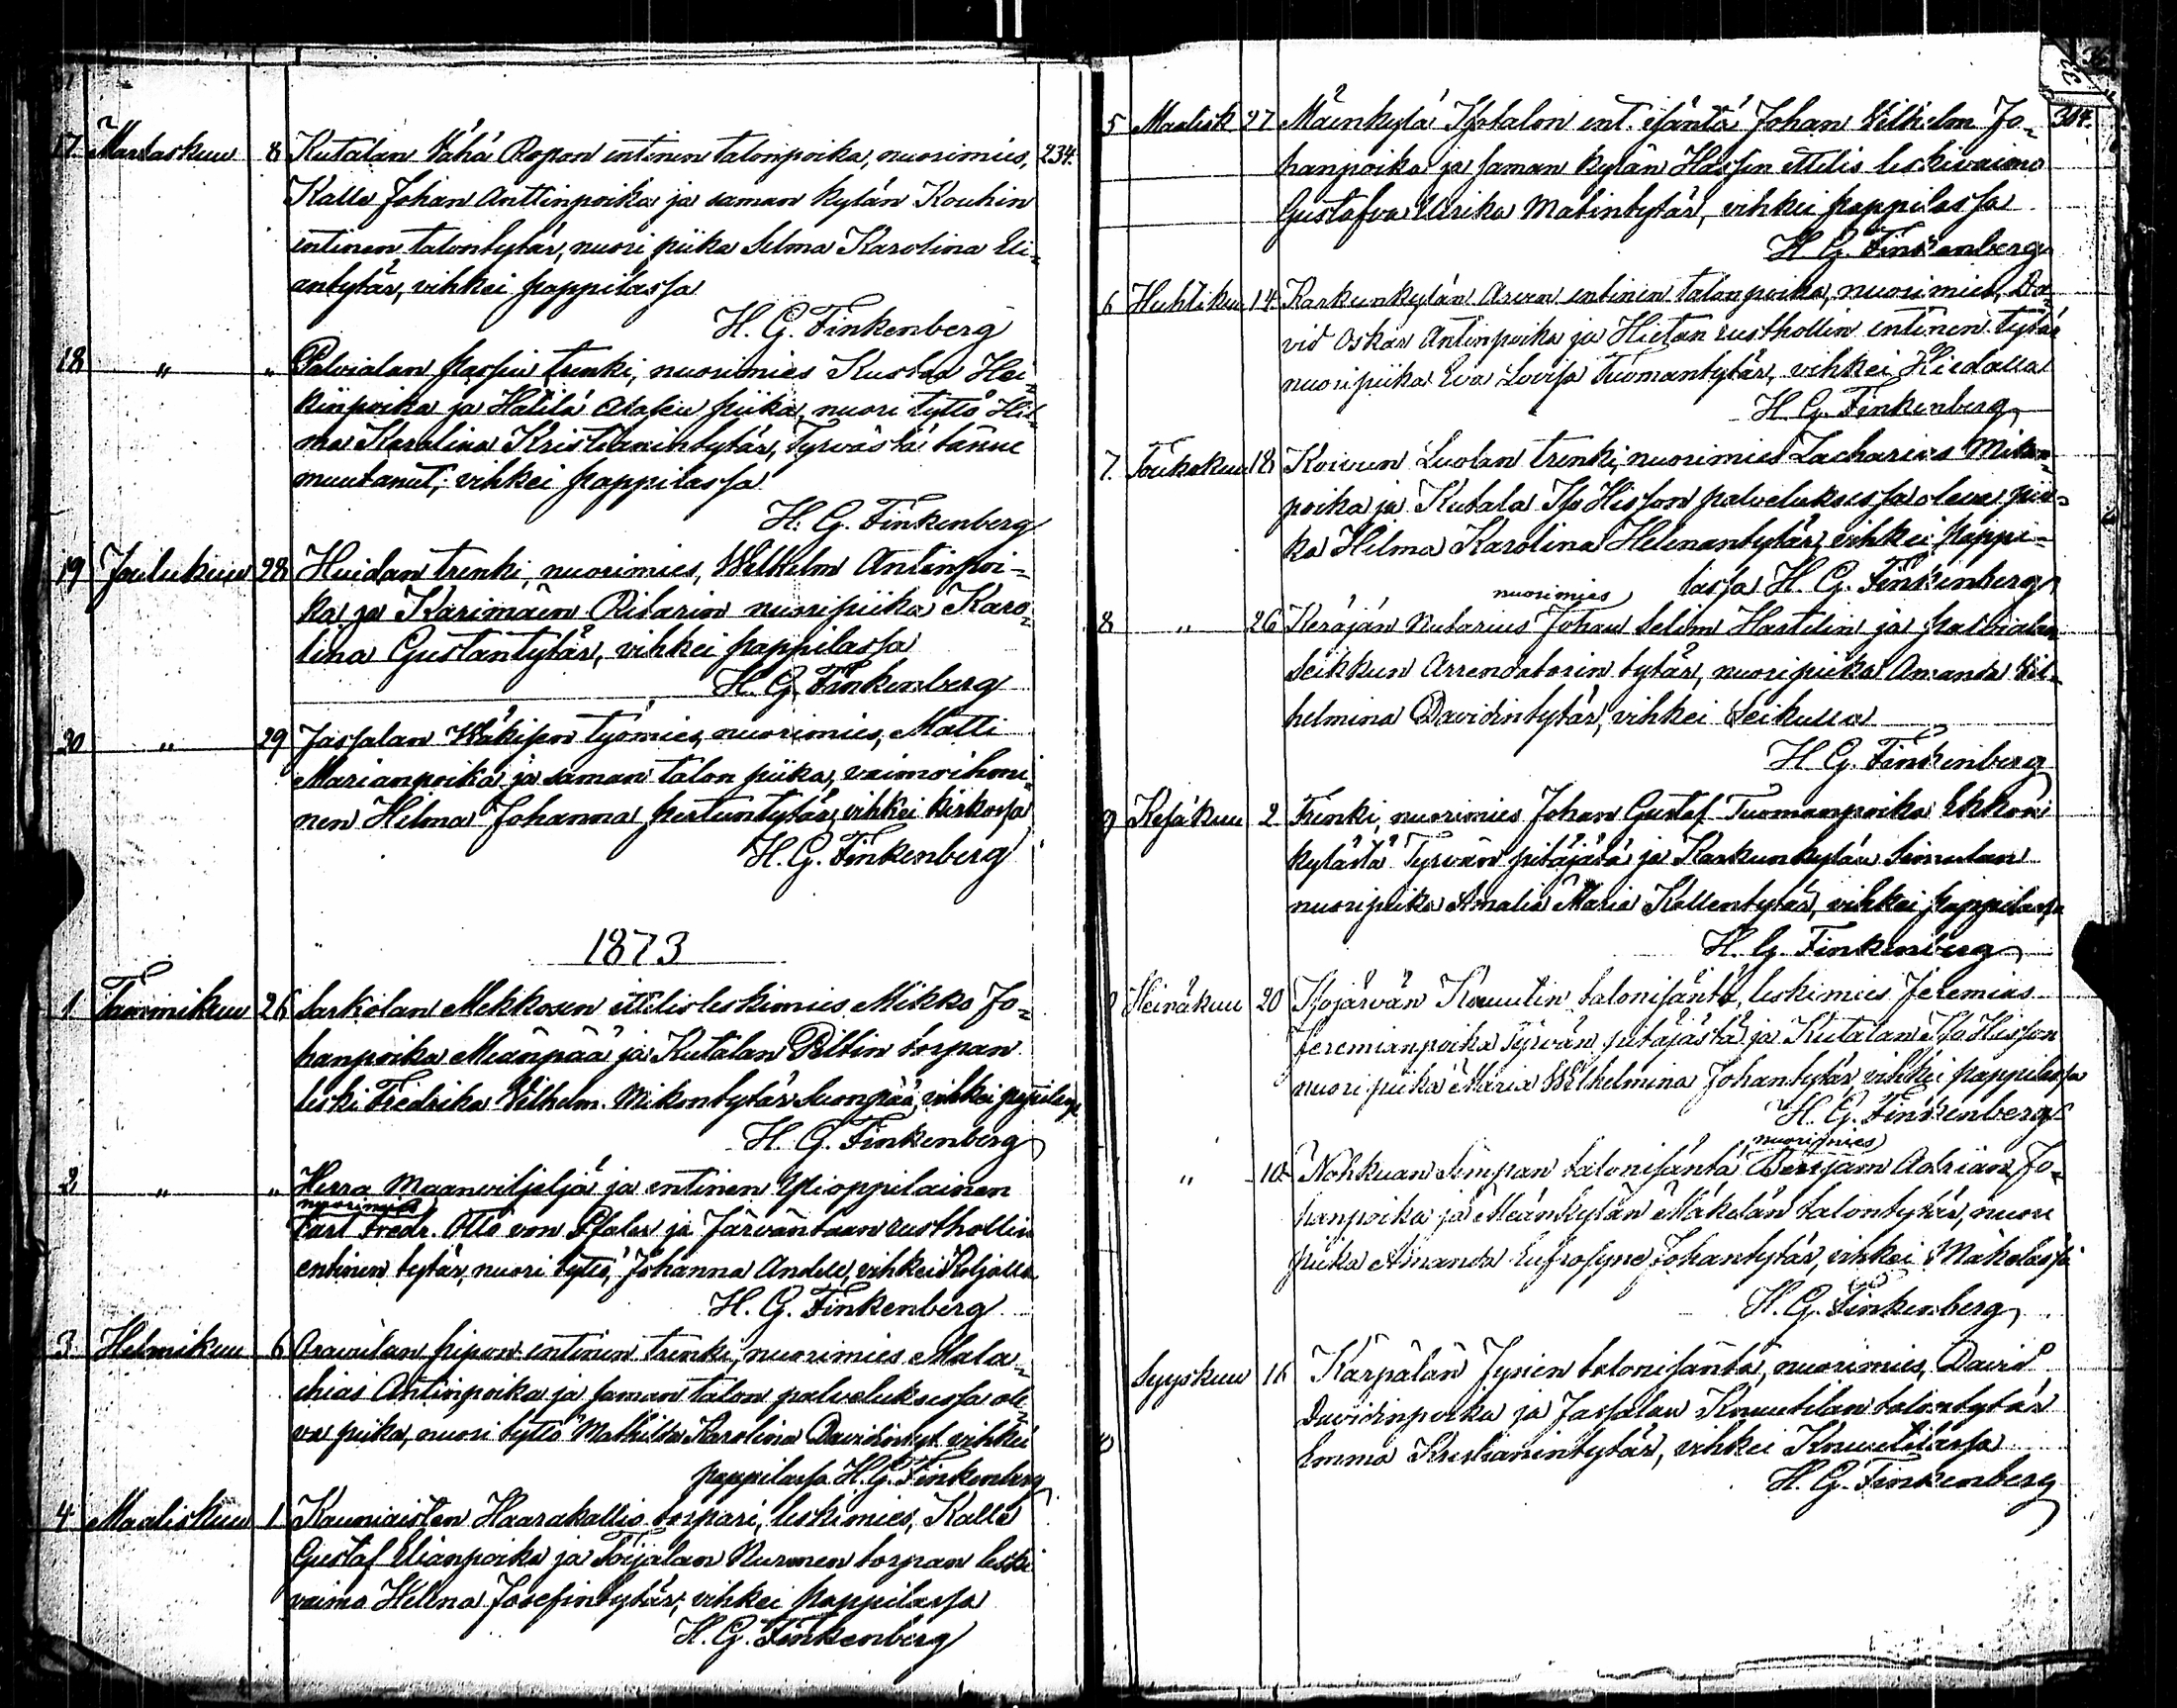 17. Marraskuu 8 Kutalan Vähä Ropon entinen talonpoika, nuorimies, 234.
Kalle Johan Anttinpoika ja saman kylän Kouhin
entinen talontytär, nuori piika Selma Karolina Eli-
antytär, vihkei pappilassa
H. G. Finkenberg
18 " " Palvialan trenki, nuorimies Kustaa Hei-
kinpoika ja Hätilä piika, nuori tyttö Hil-
ma Karolina Kristianintytär, Tyrväästä tänne
muutanut; vihkei pappilassa
H. G. Finkenberg
19 Joulukuu 28 Huidan trenki, nuorimies, Wilhelm Antinpoi-
ka ja Karimäen Ritarin nuoripiika Karo-
lina Gustantytär, vihkei pappilassa
H. G. Finkenberg
20 " 29 Jassalan työmies, nuorimies, Matti
Marianpoika ja saman talon piika, vaimoihmi-
nen Helma Johanna pertuntytär, vihkei kirkossa
H. G. Finkenberg
1873
1 Tammikuu 26 Sarkolan Mekkosen itellisleskimies Mikko Jo-
hanpoika Meänpää ja Kutalan Piltin torpan
leski Fredrika Vilhelm. Mikontytär Suonpää, vihkei
H. G. Finkenberg
2 " " Herra Maanviljeljä ja entinen Ylioppilainen
nuorimies
Carl Fredr. Otto von Pfaler ja Järventaan rusthollin
entinen tytär, nuori tyttö, Johanna Andell, vihkei
H. G. Finkenberg
3. Helmikuu 6 entinen trenki, nuorimies Mala-
chias Antinpoika ja saman talon palveluksessa ole-
va piika, nuori tyttö Mathilda Karolina Davidintyt. vihkei
pappilassa H. G. Finkenberg
4. Maaliskuu 1 Kauniaisten Haarakallio torpari, leskimies, Kalle
Gustaf Elianpoika ja Toijalan Nurmen torpan leski
vaimo Helena Josefintytär; vihkei pappilassa
H. G. Finkenberg
5 Maalisk 27 Mäenkylä Isotalon ent. isäntä Johan Vilhelm Jo- 304.
hanpoika ja saman kylän Hassin ittelis leskivaimo
Gustafva Ulrika Matintytär, vihkei pappilassa
H. G. Finkenberg
6 Huhtikuu 14 Karkunkylän entinen talonpoika, nuorimies, Da-
vid Oskar Antinpoika ja Hietan rusthollin entinen tytär
nuoripiika Eva Lovisa Tuomantytär, vihkei Hiedalla
H. G. Finkenberg
7. Toukokuu 18 Koivun Luolan trenki, nuorimies Zacharias Mikon-
poika ja Kutala Iso Hisson palveluksessa oleva pii-
ka Hilma Karolina Helenantytär, vihkei pappi-
lassa H. G. Finkenberg
nuorimies
8 " 26 Käräjän Notarius Johan Selim Hartelin ja Palvialan
Seikkun Arrendatorin tytär, nuoripiika Amanda Vil-
helmina Davidintytär, vihkei Seikulla
H. G. Finkenberg
9 Kesäkuu 2 Trenki, nuorimies Johan Gustaf Tuomanpoika
kylästä Tyrvään pitäjästä ja Karkunkylän Simulan
nuoripiika Amalia Maria Kallentytär, vihkei pappilassa
H. G. Finkenberg
Heinäkuu 20 Isojärvän Knuutin talonisäntä, leskimies Jeremias
Jeremianpoika Tyrvän pitäjästä ja Kutalan Iso Hisson
nuoripiika Maria Wilhelmina Johantytär, vihkei pappilassa
H. G. Finkenberg
nuorimies
" 10 Nohkuan Simpan talonisäntä, Benjam Adrian Jo-
hanpoika ja Meänkylän Mäkelän talontytär, nuori
piika Amanda Eufrosyne Johantytär, vihkei Mäkelässä
H. G. Finkenberg
Syyskuu 16 Kärpälän Jysien talonisäntä, nuorimies, David
Davidinpoika ja Jassalan Knuutilan talontytär
Emma Kristianintytär, vihkei Knuutilassa
H. G. Finkenberg